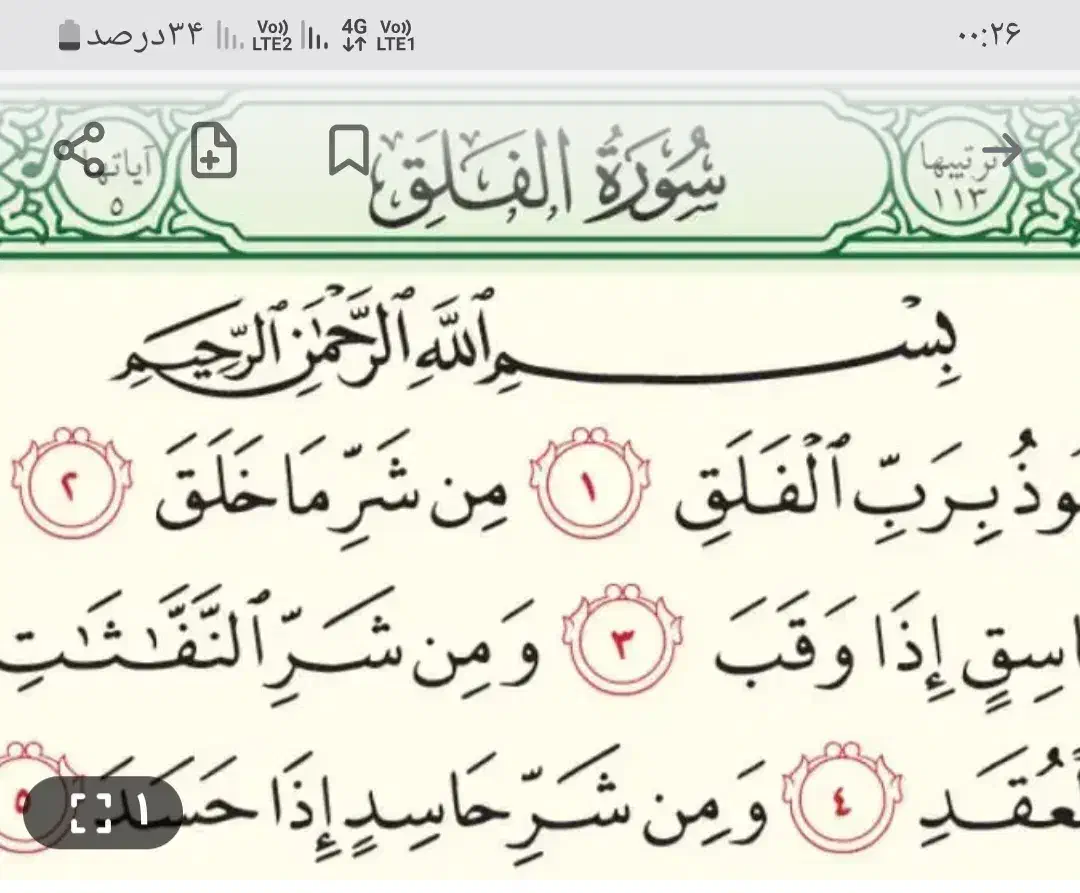 ۳۴درصد Vo)) LTE2 4G Vo)) LTE1 ۰۰:۲۶
ترتيبها ١١٣ سُورَةُ الفَلَقِ آياتها ٥
بِسْمِ ٱللَّهِ ٱلرَّحْمَٰنِ ٱلرَّحِيمِ
وذُ بِرَبِّ ٱلْفَلَقِ ١ مِن شَرِّ مَا خَلَقَ ٢
اسِقٍ إِذَا وَقَبَ ٣ وَمِن شَرِّ ٱلنَّفَّٰثَٰتِ
لْعُقَدِ ٤ وَمِن شَرِّ حَاسِدٍ إِذَا حَسَدَ ٥
١